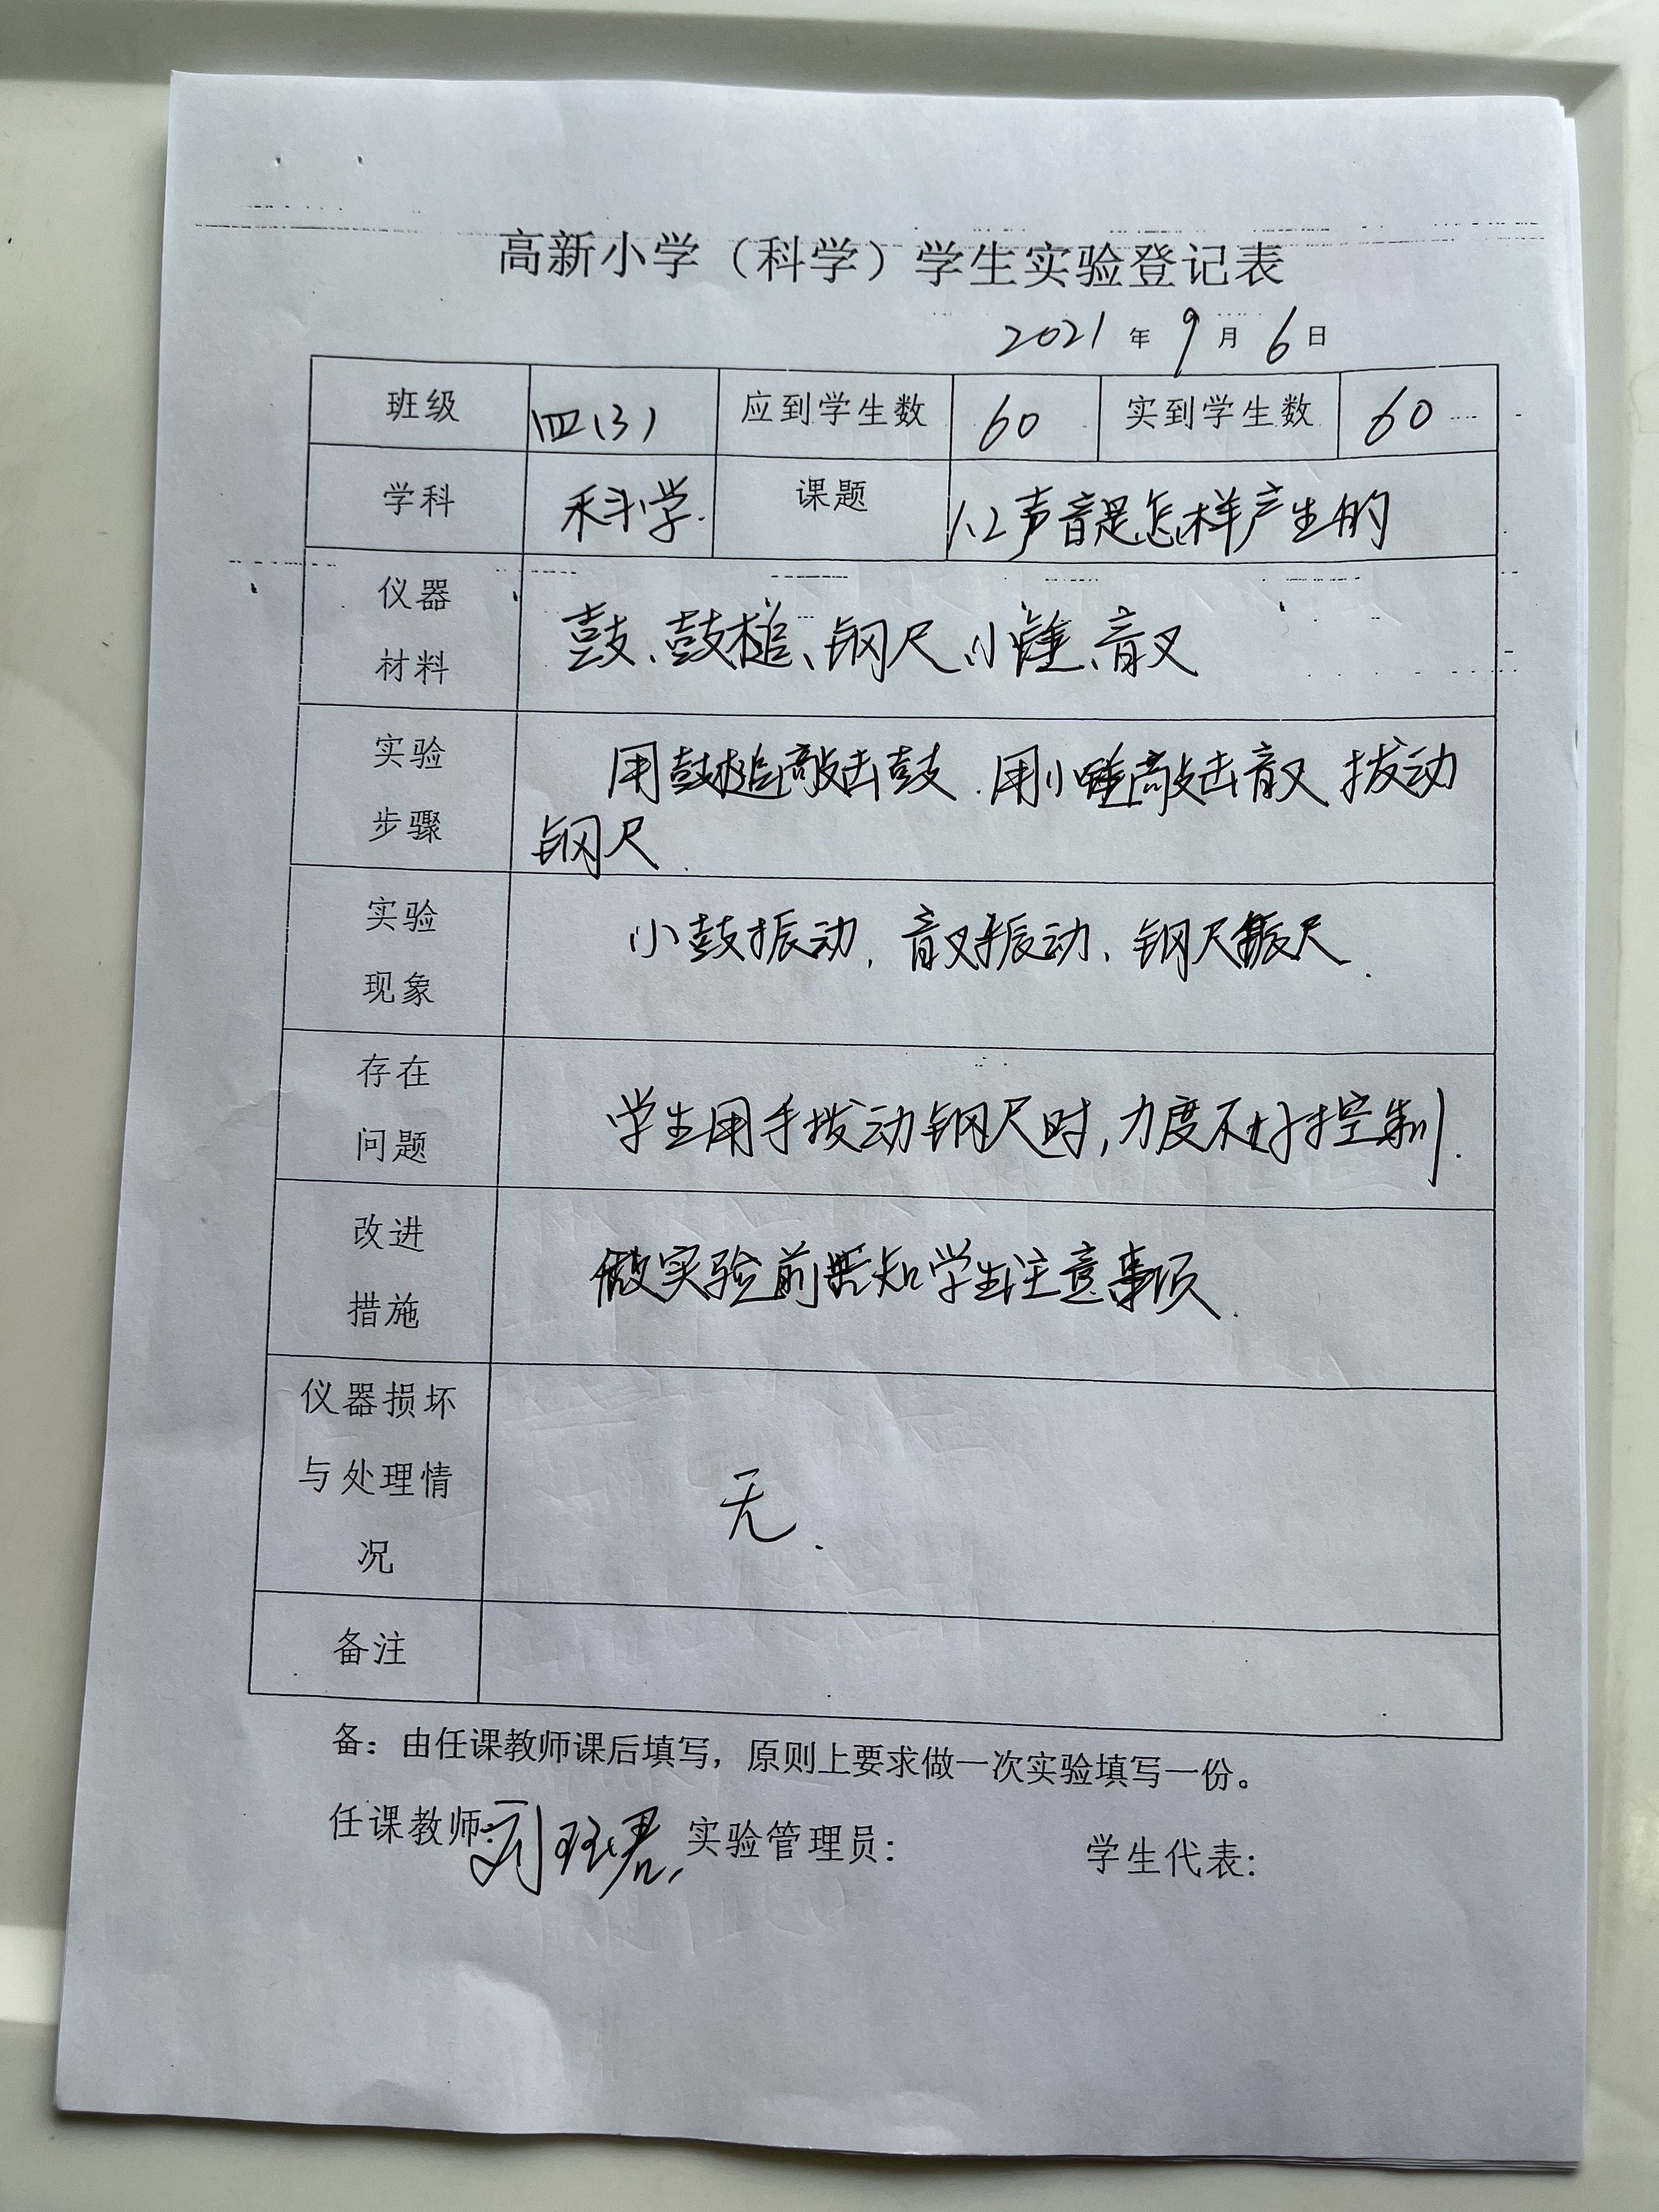 高新小学（科学）学生实验登记表
2021 年 9 月 6 日
班级 四(3) 应到学生数 60 实到学生数 60
学科 科学. 课题 1.2声音是怎样产生的
仪器
材料
鼓、鼓槌、钢尺、小锤、音叉
实验
步骤
用鼓槌敲击鼓.用小锤敲击音叉 拔动
钢尺.
实验
现象
小鼓振动、音叉振动、钢尺振尺.
存在
问题
学生用手拨动钢尺时,力度不好控制.
改进
措施
做实验前告知学生注意事项.
仪器损坏
与处理情
况
无.
备注
备：由任课教师课后填写，原则上要求做一次实验填写一份。
任课教师: 刘 君 实验管理员： 学生代表：